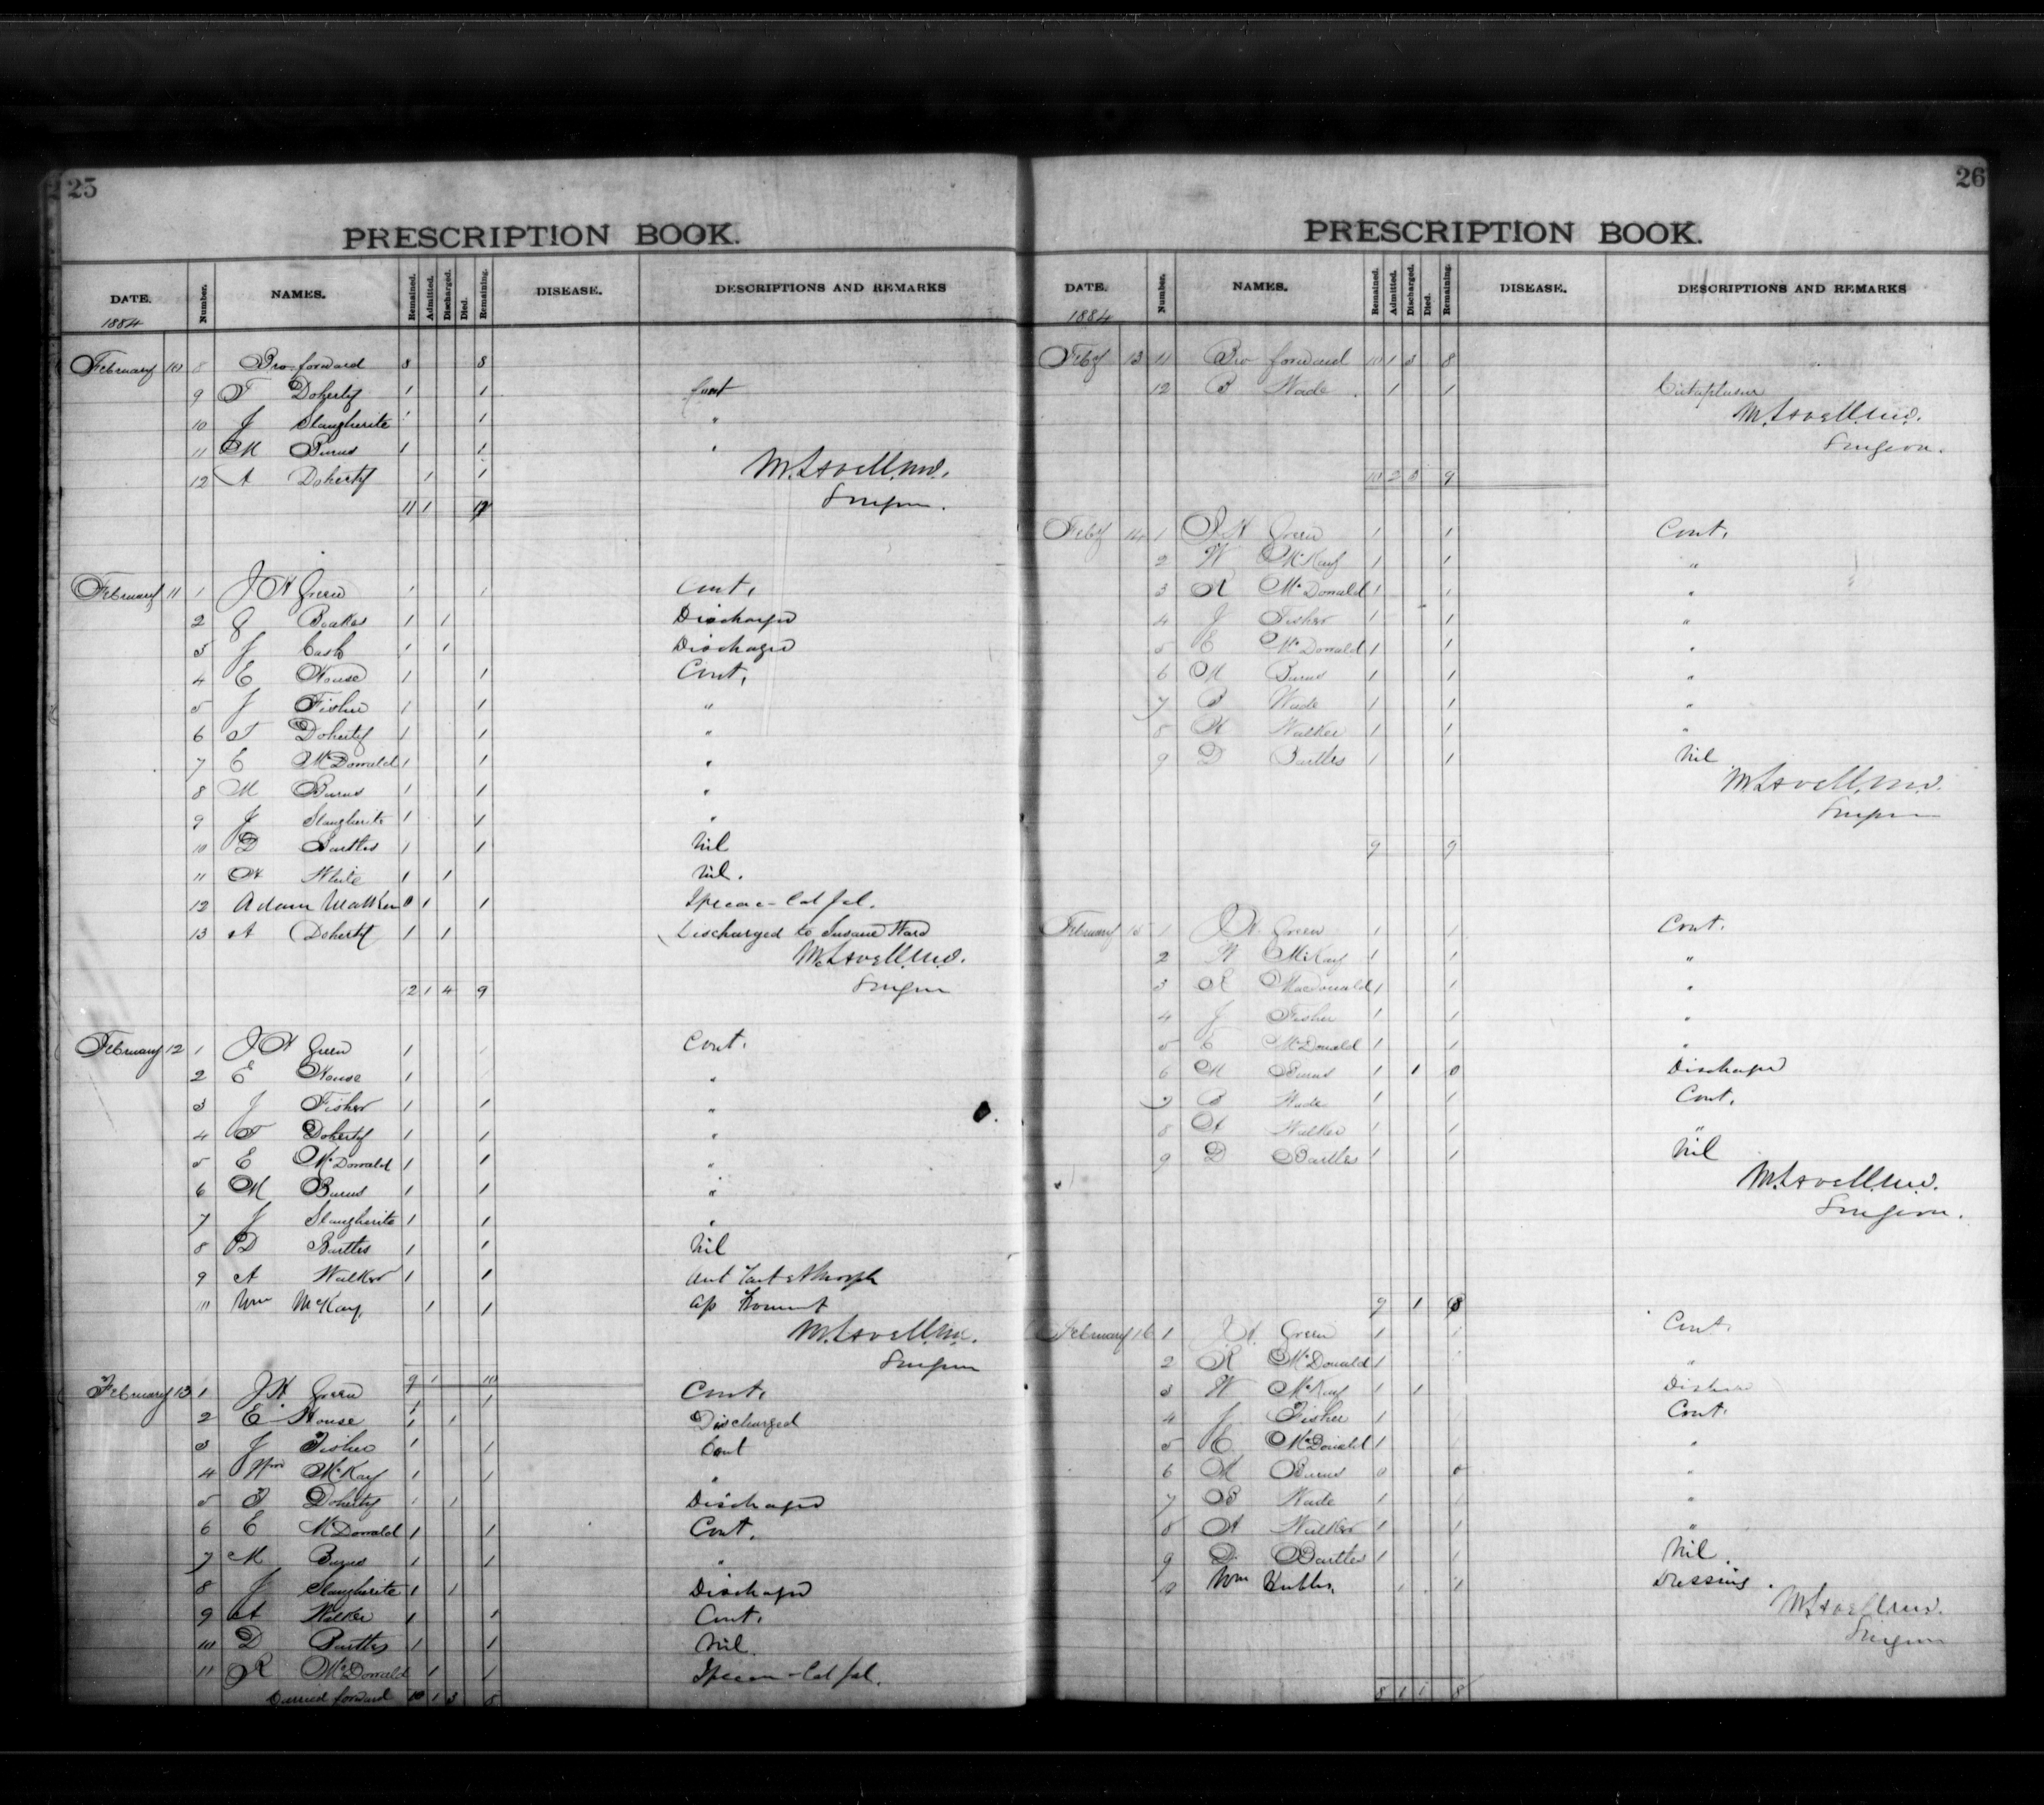 25
PRESCRIPTION BOOK.
DATE. Number. NAMES. Remained. Admitted. Discharged. Died. Remaining. DISEASE. DESCRIPTIONS AND REMARKS
1884
February 10 8 Bro. forward 8 8
9 T Doherty 1 1 Cont
10 J Slaugherite 1 1 "
11 M Burns 1 1 "
12 A Doherty 1 1 M. Lavell, M.D.
Surgeon.
11 1 12
February 11 1 J H Green 1 1 Cont.
2 Beaker 1 1 Discharged
3 J Cash 1 1 Discharged
4 E House 1 1 Cont.
5 J Fisher 1 1 "
6 T Doherty 1 1 "
7 E McDonald 1 1 "
8 M Burns 1 1 "
9 J Slaugherite 1 1 "
10 D Bartles 1 1 Nil
11 White 1 1 Nil.
12 Adam Walker 0 1 1 Ipecac - Cal Jal.
13 A Doherty 1 1 Discharged to Insane Ward
M. Lavell, M.D.
12 1 4 9 Surgeon
February 12 1 J H Green 1 1 Cont.
2 E House 1 "
3 J Fisher 1 1 "
4 T Doherty 1 1 "
5 E McDonald 1 1 "
6 M Burns 1 1 "
7 J Slaugherite 1 1 "
8 D Bartles 1 1 Nil
9 A Walker 1 1 Ant Tart et Morph
10 Wm McKay. 1 1
M. Lavell, M.D.
Surgeon
9 1 10
February 13 1 J H Green 1 1 Cont.
2 E House 1 1 Discharged
3 J Fisher 1 1 Cont
4 Wm McKay 1 1 "
5 T Doherty 1 1 Discharged
6 E McDonald 1 1 Cont.
7 M Burns 1 1 "
8 J Slaugherite 1 1 Discharged
9 A Walker 1 1 Cont.
10 D Bartles 1 1 Nil
11 R McDonald 1 1 Ipecac - Cal Jal.
Carried forward 10 1 3 8
26
PRESCRIPTION BOOK.
DATE. Number. NAMES. Remained. Admitted. Discharged. Died. Remaining. DISEASE. DESCRIPTIONS AND REMARKS
1884
Feby 13 11 Bro forward 10 1 3 8
12 B Wade 1 1 Cataplasm
M. Lavell, M.D.
Surgeon.
10 2 3 9
Feby 14 1 J H Green 1 1 Cont.
2 W McKay 1 1 "
3 R McDonald 1 1 "
4 J Fisher 1 1 "
5 E McDonald 1 1 "
6 M Burns 1 1 "
7 B Wade 1 1 "
8 A Walker 1 1 "
9 D Bartles 1 1 Nil
M. Lavell, M.D.
Surgeon
9 9
February 15 1 J H. Green 1 1 Cont.
2 W McKay 1 1 "
3 R MacDonald 1 1 "
4 J Fisher 1 1 "
5 E McDonald 1 1 "
6 M Burns 1 1 0 Discharged
7 B Wade 1 1 Cont.
8 A Walker 1 1 "
9 D Bartles 1 1 Nil
M. Lavell, M.D.
Surgeon.
9 1 8
February 16 1 J H. Green 1 1 Cont.
2 R McDonald 1 1 "
3 W McKay 1 1
4 J Fisher 1 1 Cont.
5 E McDonald 1 1 "
6 M Burns 0 0 "
7 B Wade 1 1 "
8 A Walker 1 1 "
9 D. Bartles 1 1 Nil.
10 Wm 1 1 Dressing.
M. Lavell, M.D.
Surgeon
8 1 1 8